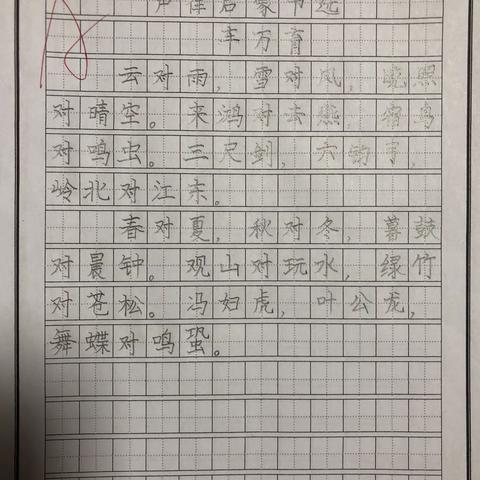 声律启蒙节选
车万育
云对雨，雪对风，晚照
对晴空。来鸿对去燕，宿鸟
对鸣虫。三尺剑，六钧弓，
岭北对江东。
春对夏，秋对冬，暮鼓
对晨钟。观山对玩水，绿竹
对苍松。冯妇虎，叶公龙，
舞蝶对鸣蛩。